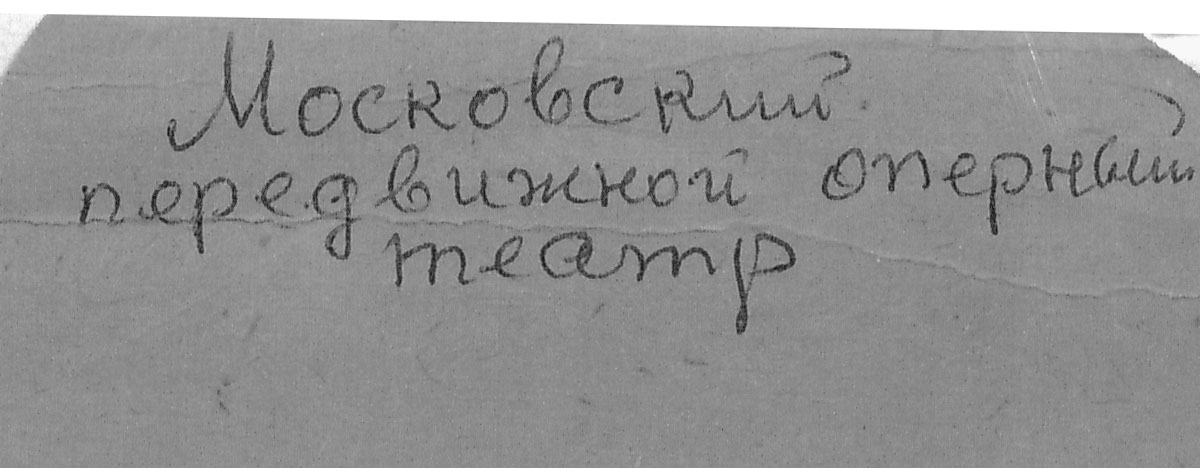 Московский
передвижной оперный
театр